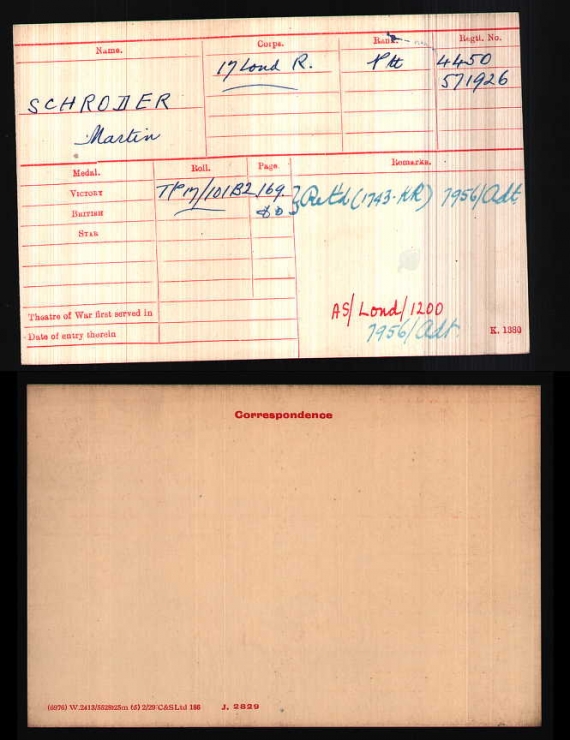 Name.
Corps.
Rank.
Regtl. No.
SCHRODER
Martin
17 Lond R.
Pte
4450
571926
Medal.
Roll.
Page.
Remarks.
VICTORY
TP 17/101B2
169
BRITISH
do
Retd (1743·KR) 7956/Adt
STAR
Theatre of War first served in
Date of entry therein
AS/Lond/1200
7956/Adt.
K. 1380
Correspondence
J. 2829